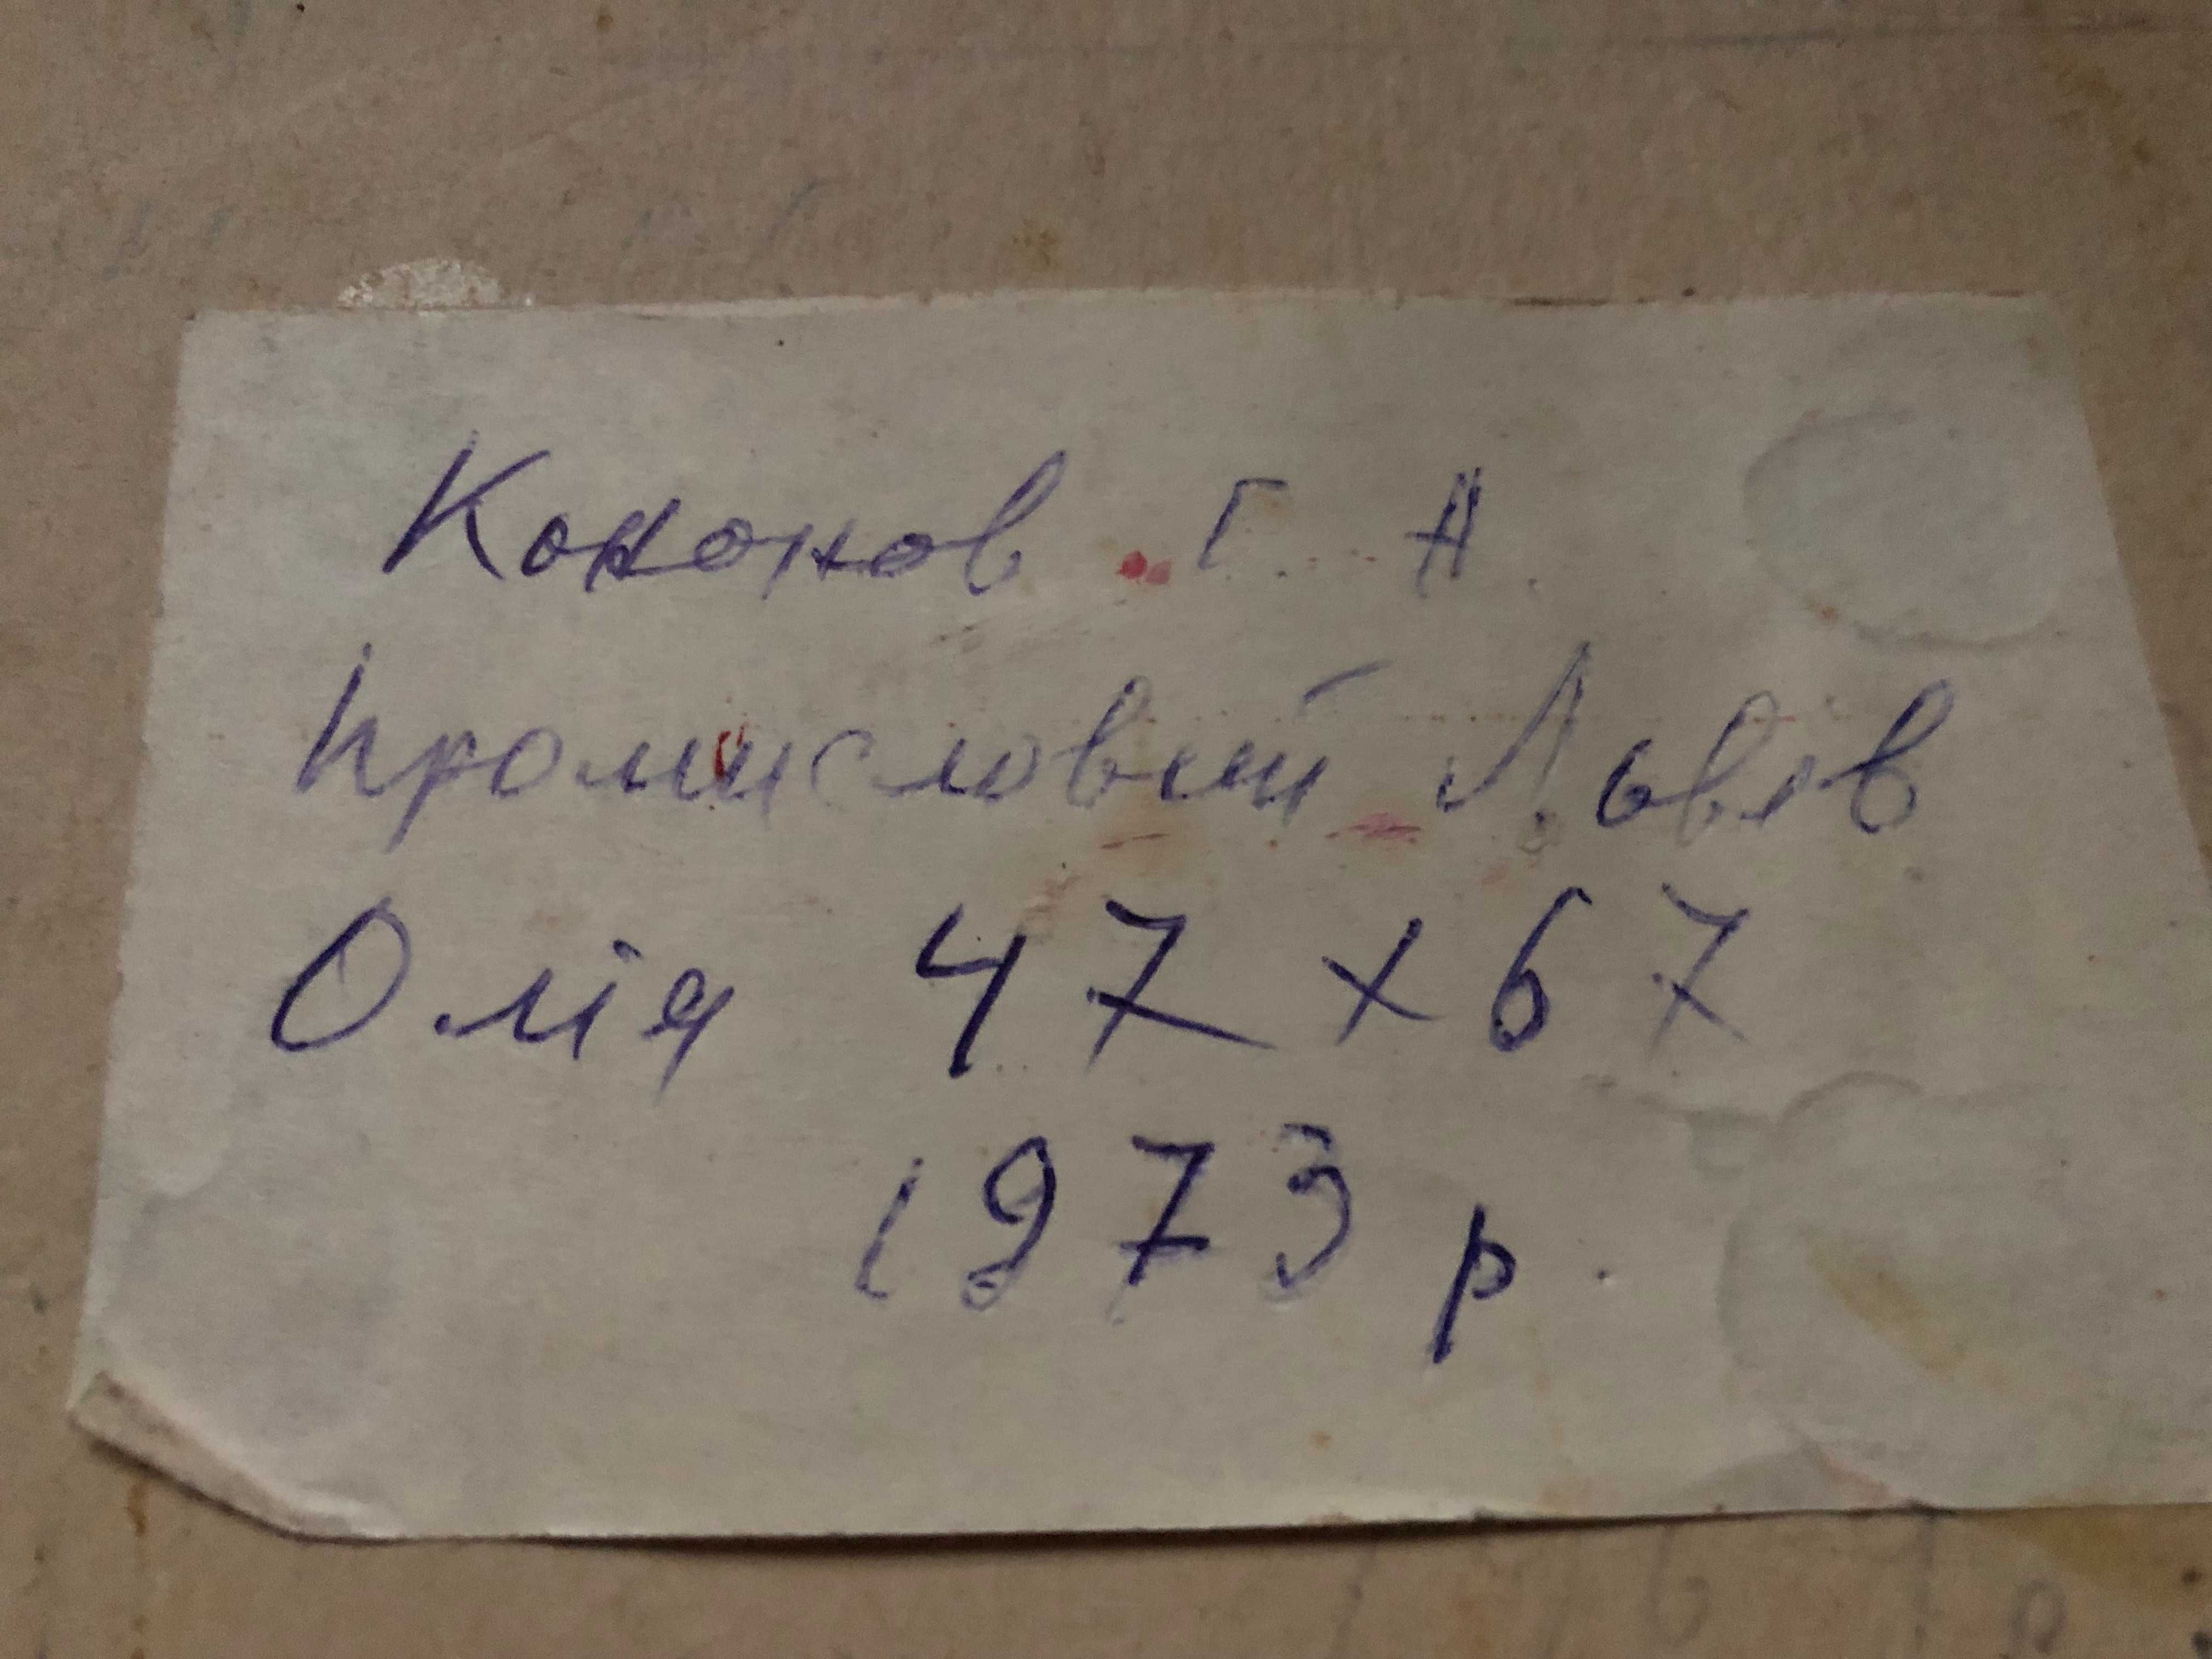 Кононов Г. А.
Промисловий Львів
Олія 47 х 67
1973 р.